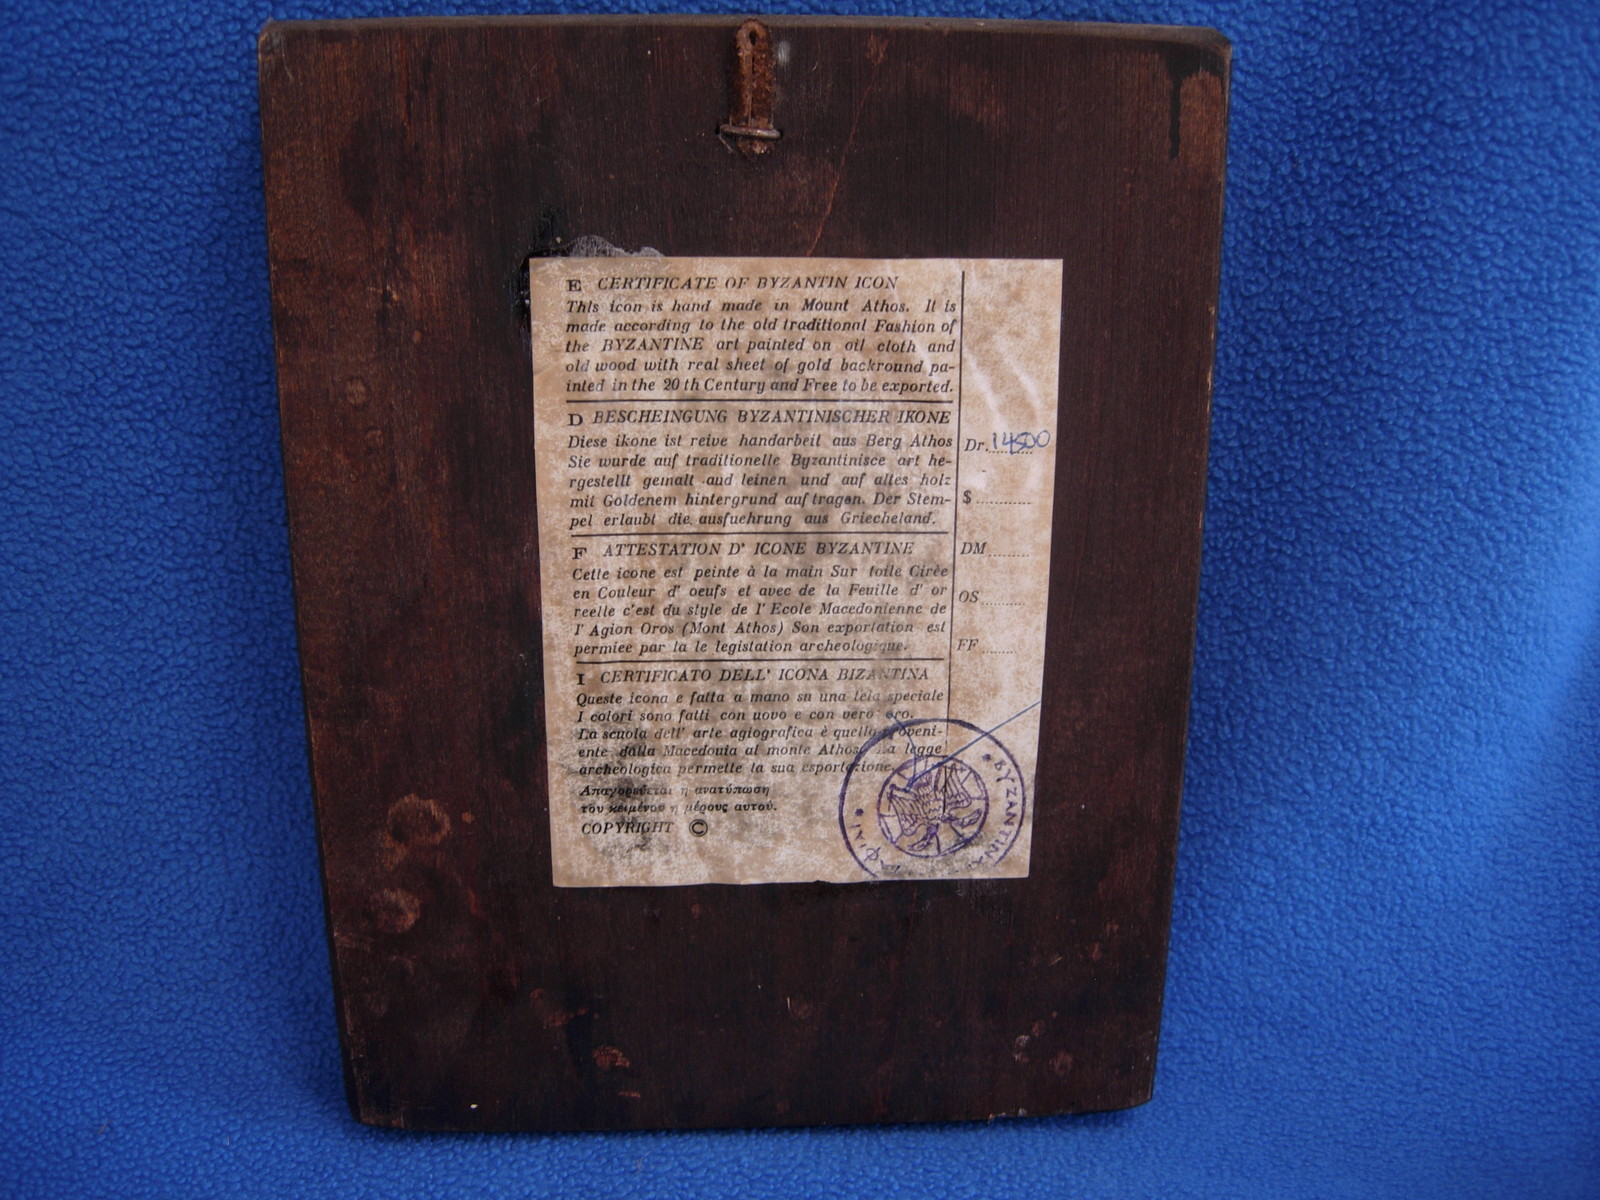 E CERTIFICATE OF BYZANTIN ICON
This icon is hand made in Mount Athos. It is
made according to the old traditional Fashion of
the BYZANTINE art painted on oil cloth and
old wood with real sheet of gold backround pa-
inted in the 20 th Century and Free to be exported.
D BESCHEINGUNG BYZANTINISCHER IKONE
Diese ikone ist reive handarbeit aus Berg Athos
Sie wurde auf traditionelle Byzantinisce art he-
rgestellt gemalt aud leinen und auf altes holz
mit Goldenem hintergrund auf tragen. Der Stem-
pel erlaubt die ausfuehrung aus Griecheland.
F ATTESTATION D' ICONE BYZANTINE
Cette icone est peinte à la main Sur toile Cirèe
en Couleur d' oeufs et avec de la Feuille d' or
reelle c'est du style de l' Ecole Macedonienne de
l' Agion Oros (Mont Athos) Son exportation est
permiee par la le legistation archeologique.
I CERTIFICATO DELL' ICONA BIZANTINA
Queste icona e fatta a mano su una tela speciale
I colori sono fatti con uovo e con vero oro.
La scuola dell' arte agiografica è quello proveni-
ente dalla Macedonia al monte Athos. La legge
archeologica permette la sua esportazione.
Απαγορεύεται η ανατύπωση
του κειμένου η μέρους αυτού.
COPYRIGHT ©
Dr. 14500
$
DM
OS
FF
ΒΥΖΑΝΤΙΝΑ